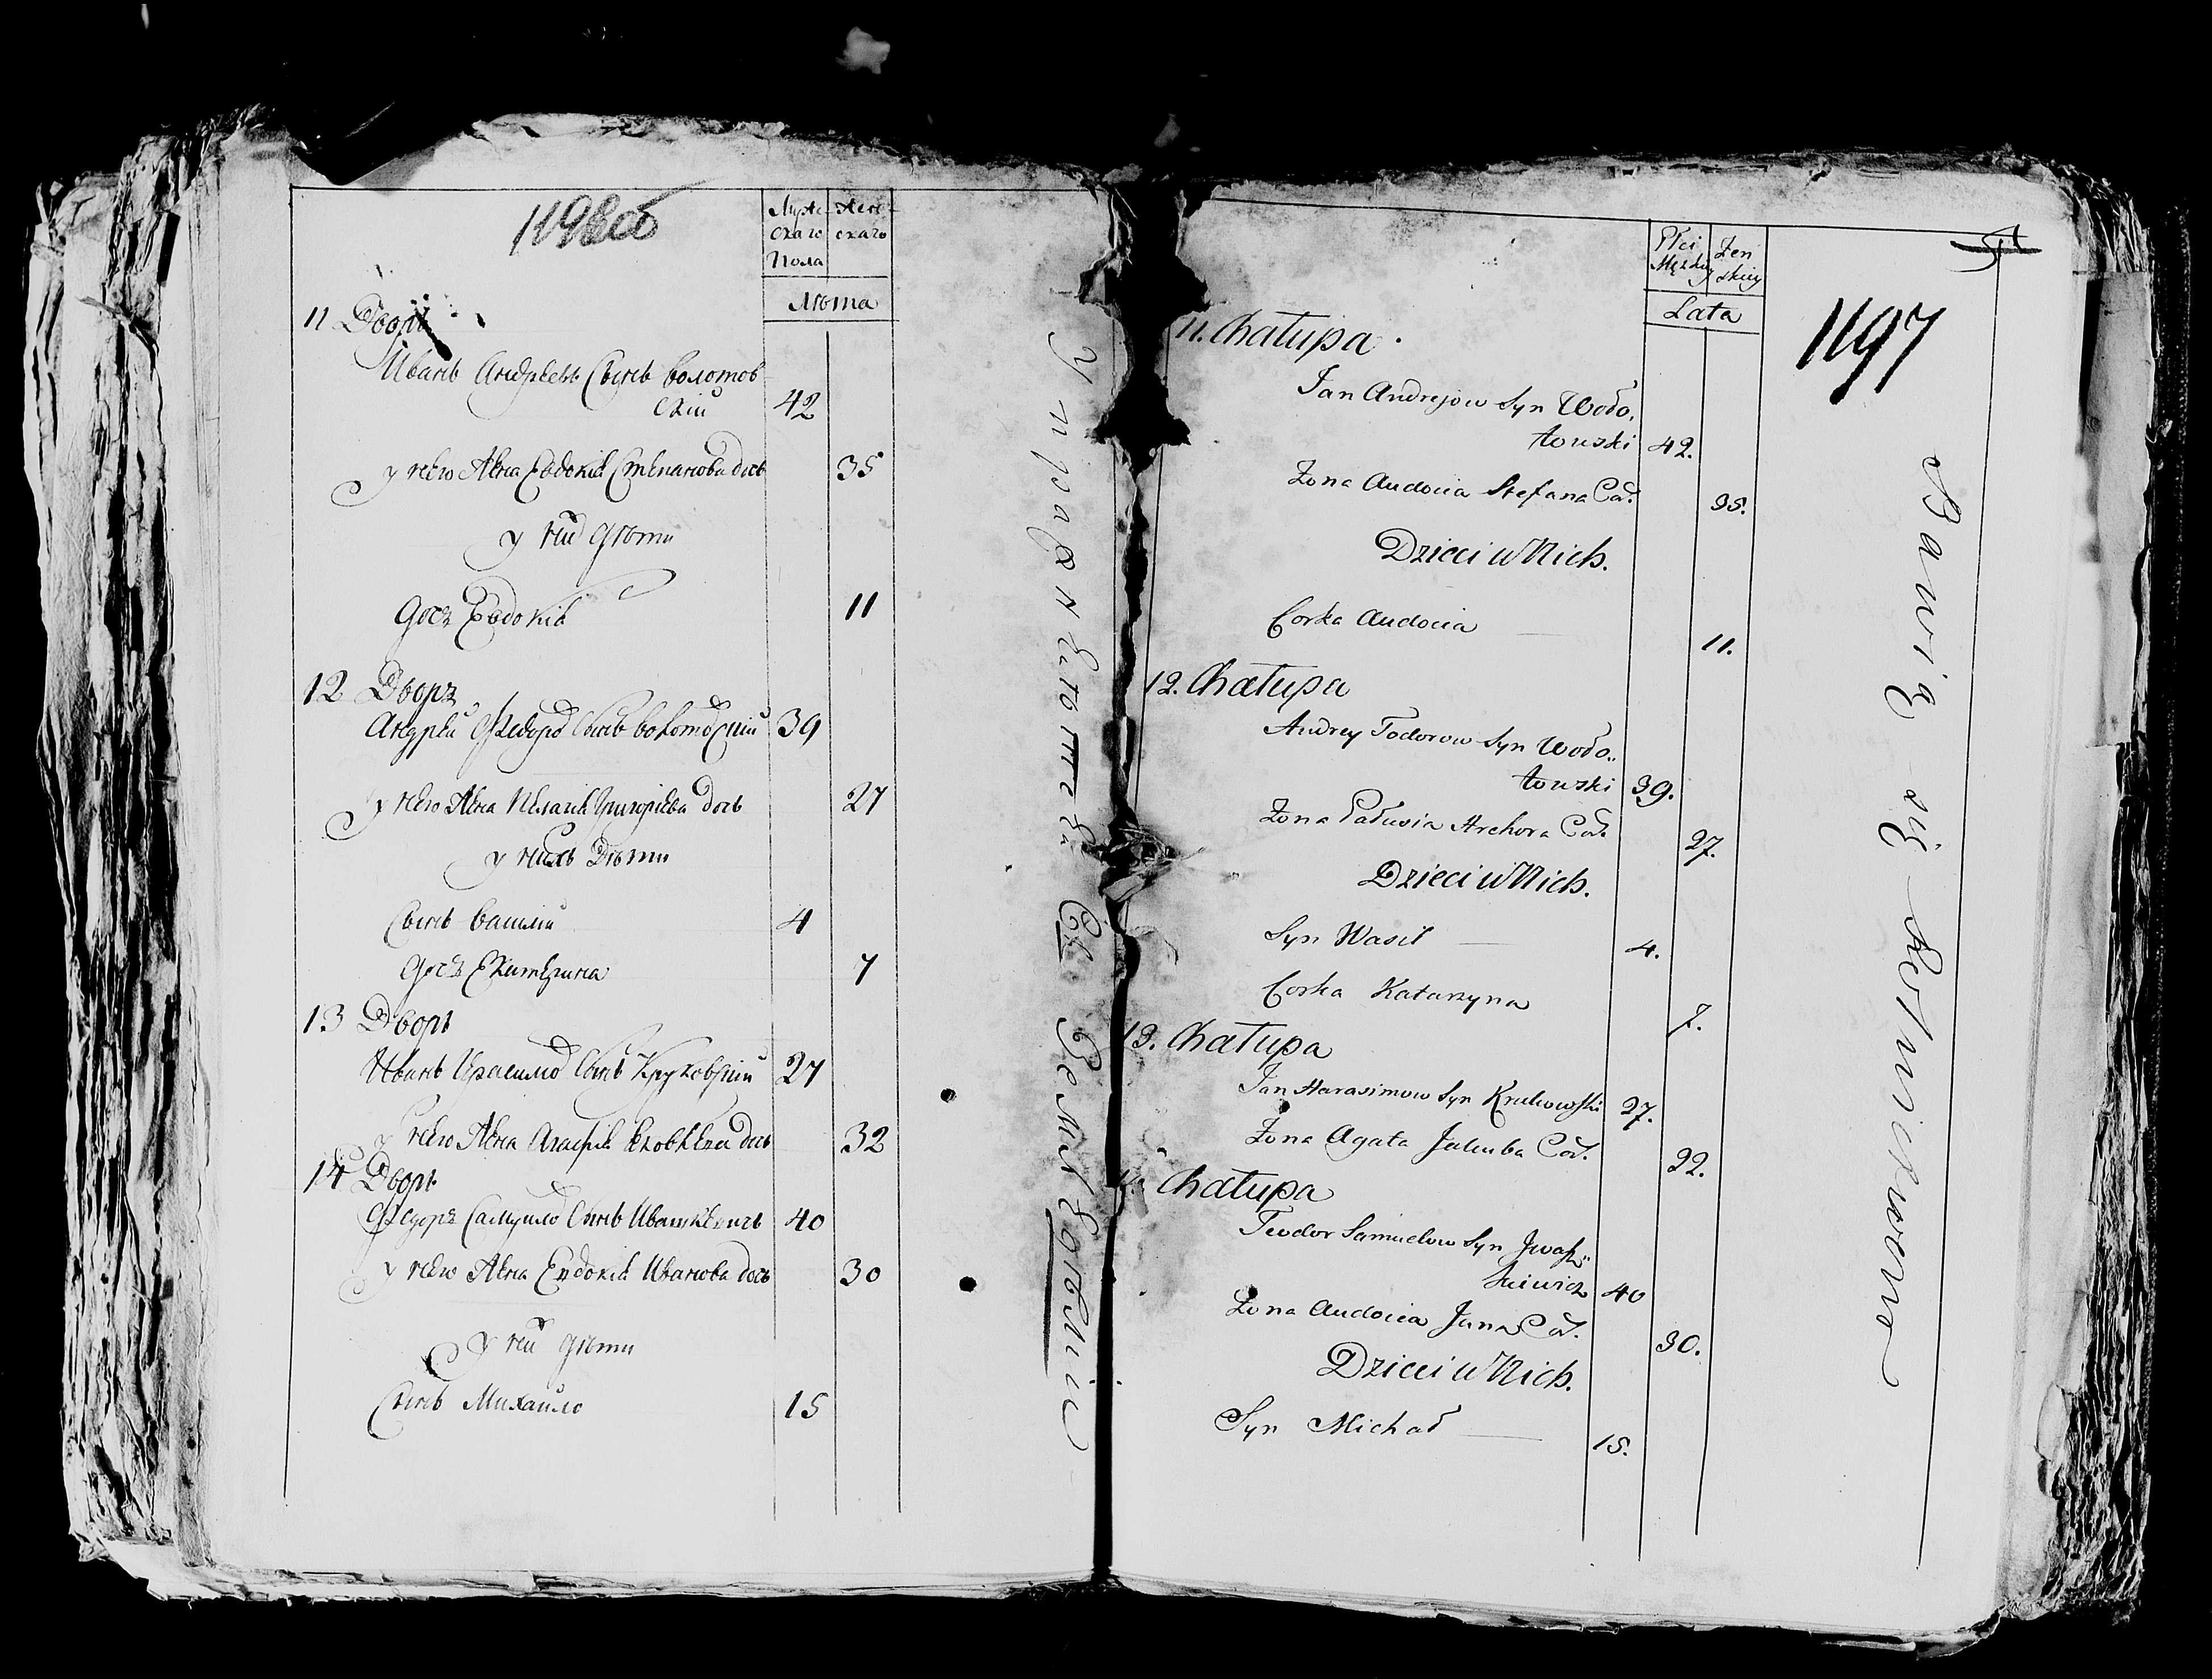 1198об
Муже
скаго
Пола
Женс
скаго
Лѣта
11 Дворъ
Иванъ Андреевъ Сынъ Волотов
скій 42
у него Жена Евдокія Степанова дочь 35
у них дѣти
дочь Евдокія 11
12 Дворъ
Андрей Федоров Сынъ Волотовский 39
у него Жена Пелагія Григорьева дочь 27
у нихъ Дѣти
Сынъ Василій 4
дочь Екатерина 7
13 Дворъ
Иванъ Герасимов Сынъ Круковский 27
у него Жена Агафія Яковлева дочь 32
14 Дворъ
Федоръ Самуилов Сынъ Ивашкевичъ 40
у него Жена Евдокія Иванова дочь 30
у них дѣти
Сынъ Михайло 15
1197
Płci
Męzkiey
Żen
skiey
Lata
11. Chałupa.
Jan Andrejow Syn Woło,
towski 42.
Żona Audocia Stefana Cor. 35.
Dzieci u Nich.
Corka Audocia 11.
12. Chałupa
Andrey Todorow Syn Woło,,
towski 39.
Żona Pałusia Cor. 27.
Dzieci u Nich.
Syn Wasil 4.
Corka Katarzyna 7.
13. Chałupa
Jan Harasimow Syn Krukowski 27.
Żona Agata Jakuba Cor. 22.
Chałupa
Teodor Samuelow Syn Iwasz,,
kiewicz 40
Żona Audocia Jana Cor. 30.
Dzieci u Nich.
Syn Michał 15.
Bawią się Rolnictwem